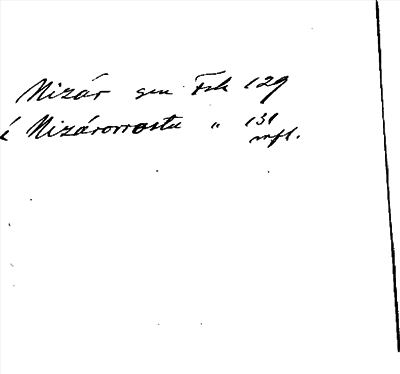 Nizár gen Fsk 129
í Nizárorrostu „ 131
mfl.